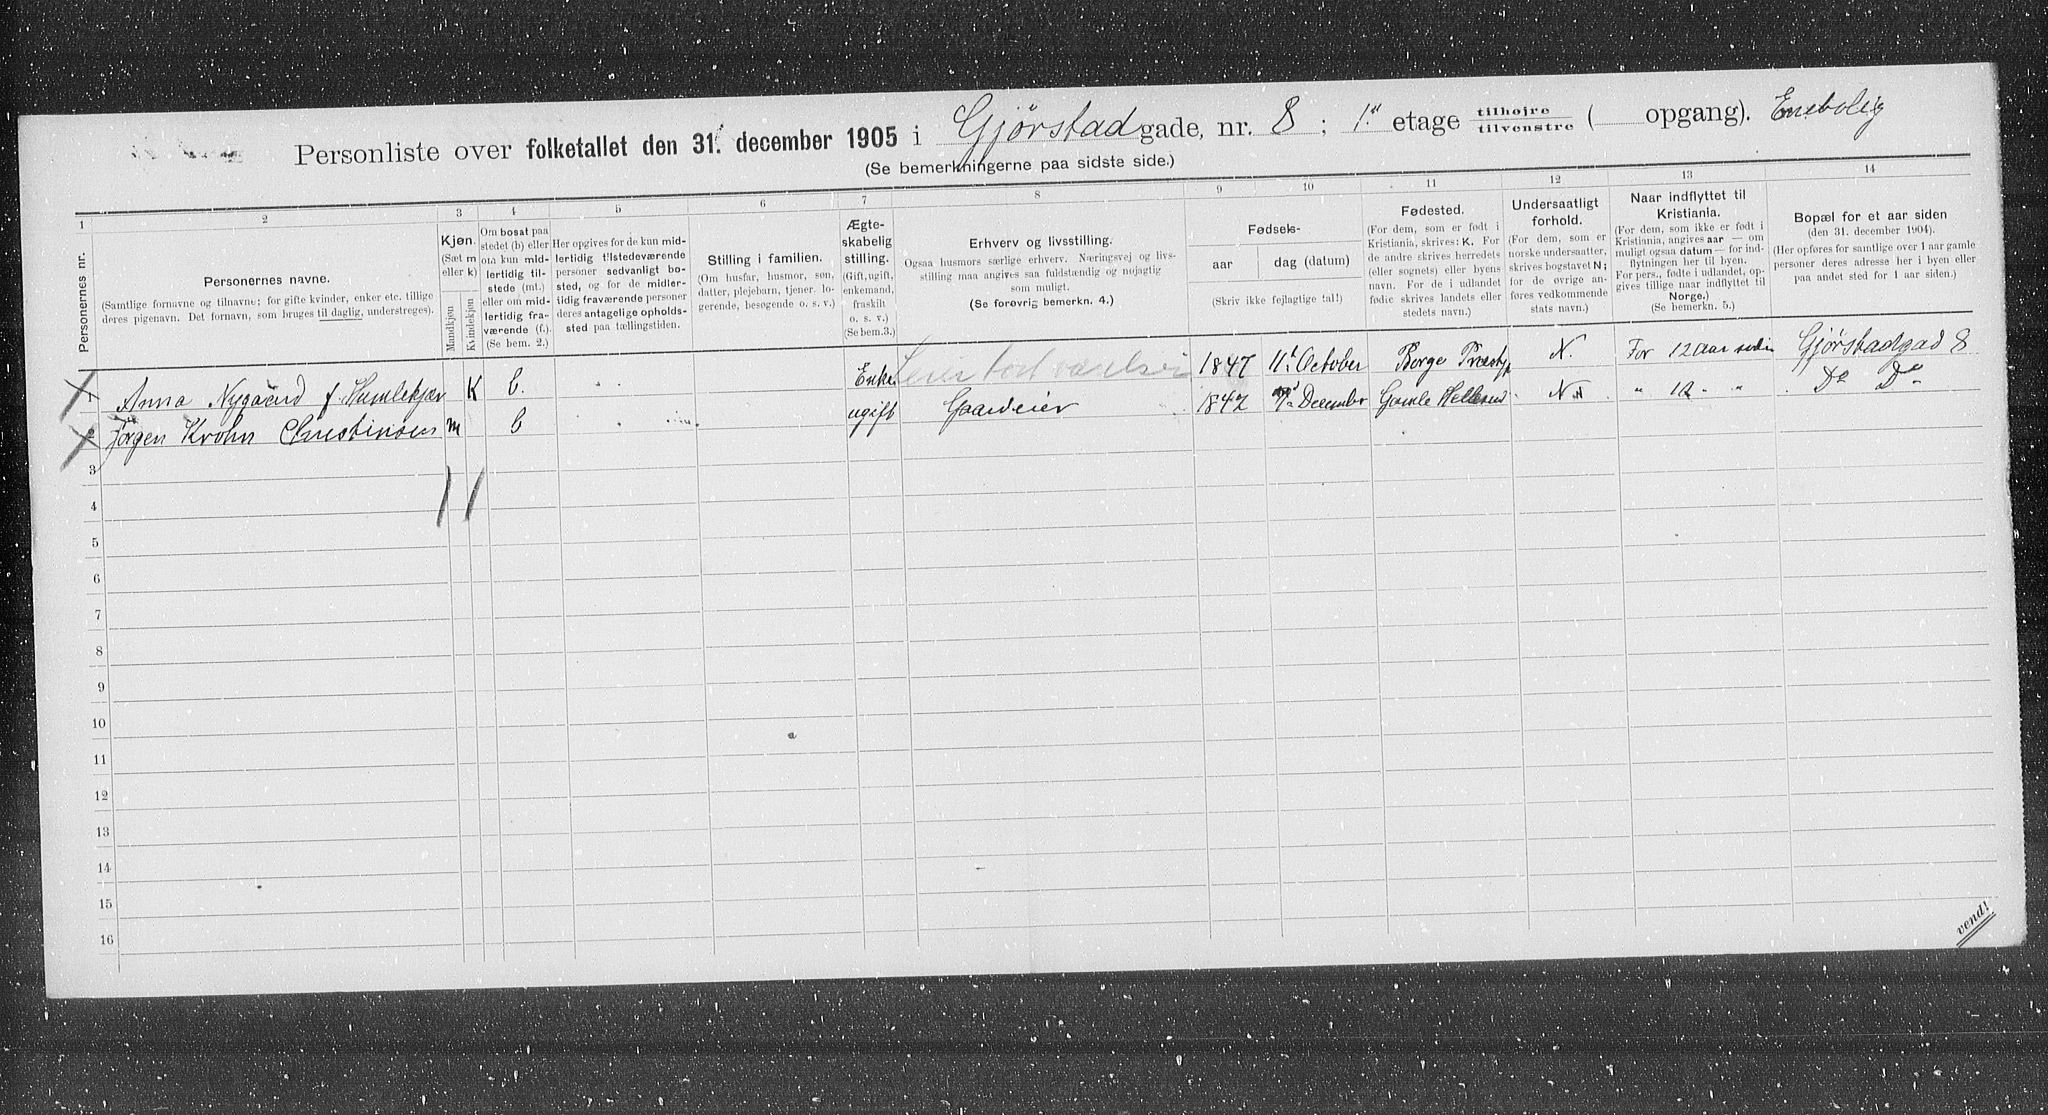 Personliste over folketallet den 31. december 1905 i Gjörstadgade, nr. 8; 1ste etage tilhøjre tilvenstre ( opgang). Enebolig
(Se bemerkningerne paa sidste side.)
1 2 3 4 5 6 7 8 9 10 11 12 13 14
Personernes nr.
Personernes navne.
(Samtlige fornavne og tilnavne; for gifte kvinder, enker etc. tillige
deres pigenavn. Det fornavn, som bruges til daglig, understreges).
Kjøn.
(Sæt m
eller k)
Mandkjøn
Kvindekjøn
Om bosat paa
stedet (b) eller
om kun mid-
lertidig til-
stede (mt.)
eller om mid-
lertidig fra-
værende (f.).
(Se bem. 2.)
Her opgives for de kun mid-
lertidig tilstedeværende
personer sedvanligt bo-
sted, og for de midler-
tidig fraværende personer
deres antagelige opholds-
sted paa tællingstiden.
Stilling i familien.
(Om husfar, husmor, søn,
datter, plejebarn, tjener, lo-
gerende, besøgende o. s. v.)
Ægte-
skabelig
stilling.
(Gift, ugift,
enkemand,
fraskilt
o. s. v.)
(Se bem. 3.)
Erhverv og livsstilling.
Ogsaa husmors særlige erhverv. Næringsvej og livs-
stilling maa angives saa fuldstændig og nøjagtig
som muligt.
(Se forøvrig bemerkn. 4.)
Fødsels-
aar
dag (datum)
(Skriv ikke fejlagtige tal!)
Fødested.
(For dem, som er født i
Kristiania, skrives: K. For
de andre skrives herredets
(eller sognets) eller byens
navn. For de i udlandet
fødte skrives landets eller
stedets navn.)
Undersaatligt
forhold.
(For dem, som er
norske undersaatter,
skrives bogstavet N;
for de øvrige an-
føres vedkommende
stats navn.)
Naar indflyttet til
Kristiania.
(For dem, som ikke er født i
Kristiania, angives aar — om
muligt ogsaa datum — for ind-
flytningen her til byen.
For pers., fødte i udlandet, op-
gives tillige naar indflyttet til
Norge.)
(Se bemerkn. 5.)
Bopæl for et aar siden
(den 31. december 1904).
(Her opføres for samtlige over 1 aar gamle
personer deres adresse her i byen eller
paa andet sted for 1 aar siden.)
1 Anna Nygaard f. Humlekjær K b. Enke 1847 11t October Borge N. For 12 aar siden Gjörstadgad 8
2 Jörgen Krohn Christinsen m b ugift Gaardeier 1842 December Gamle N " 12 " " Do Do
3
4
5
6
7
8
9
10
11
12
13
14
15
16
vend!